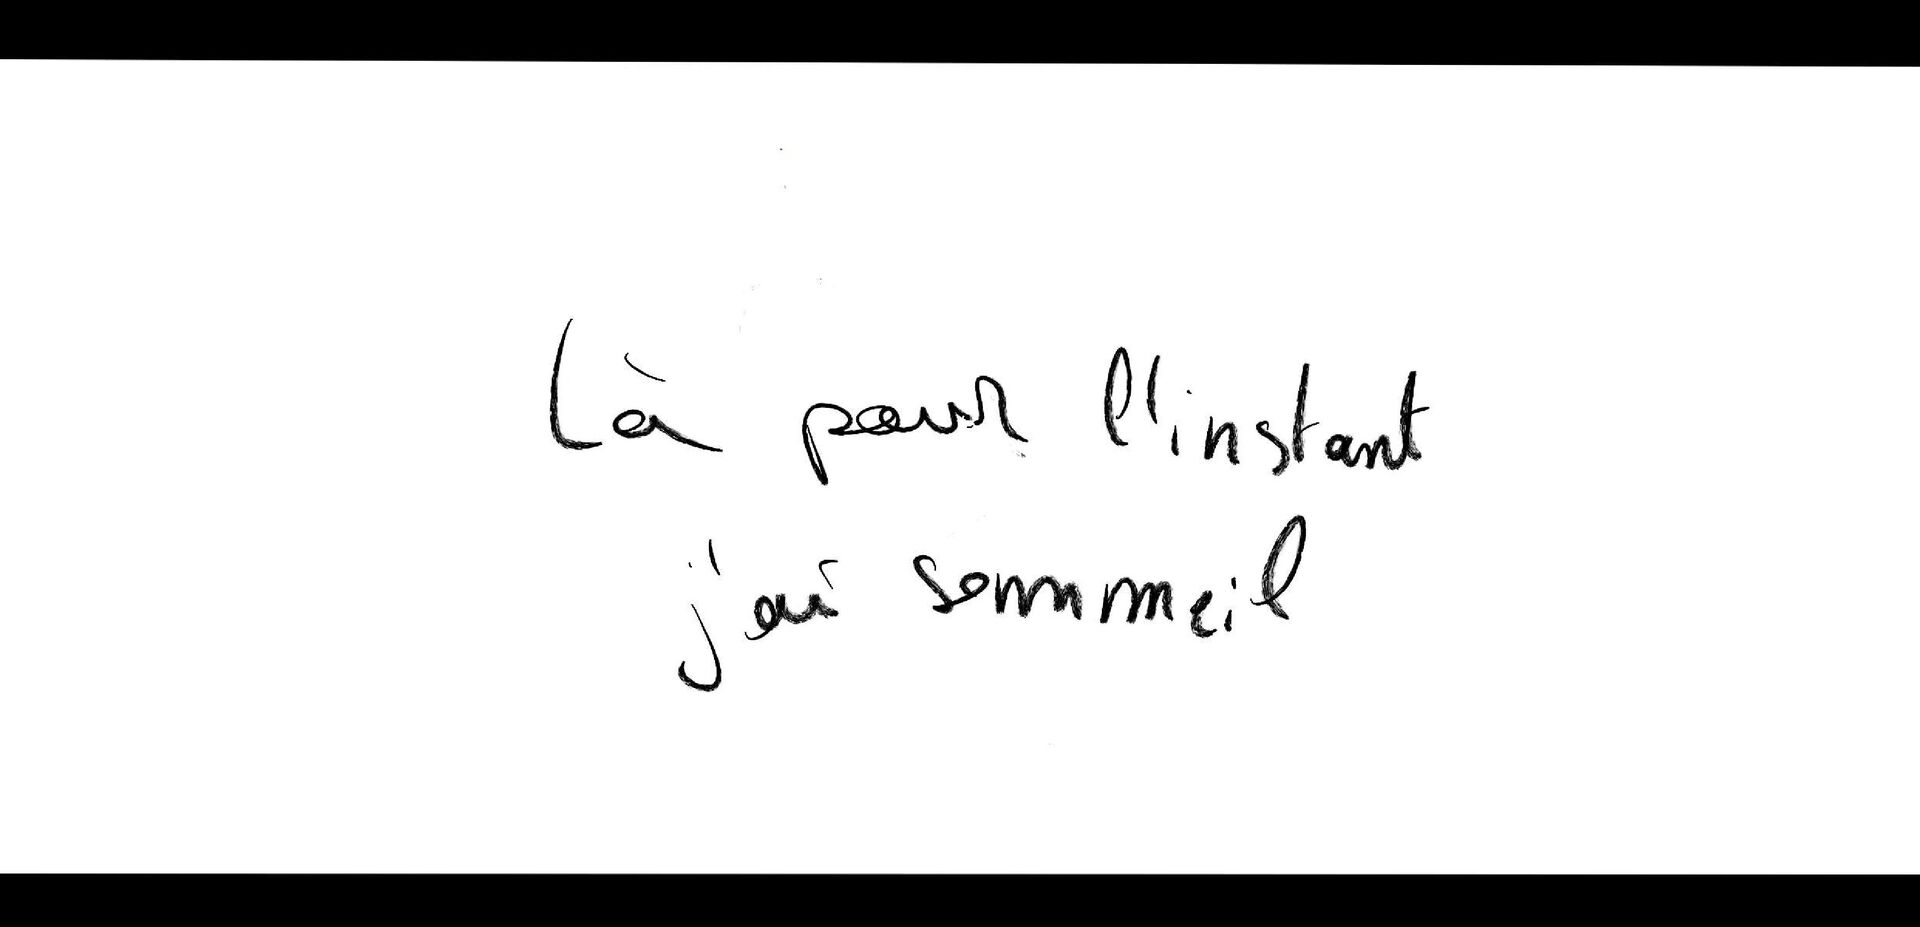 Là pour l'instant
j'ai sommeil